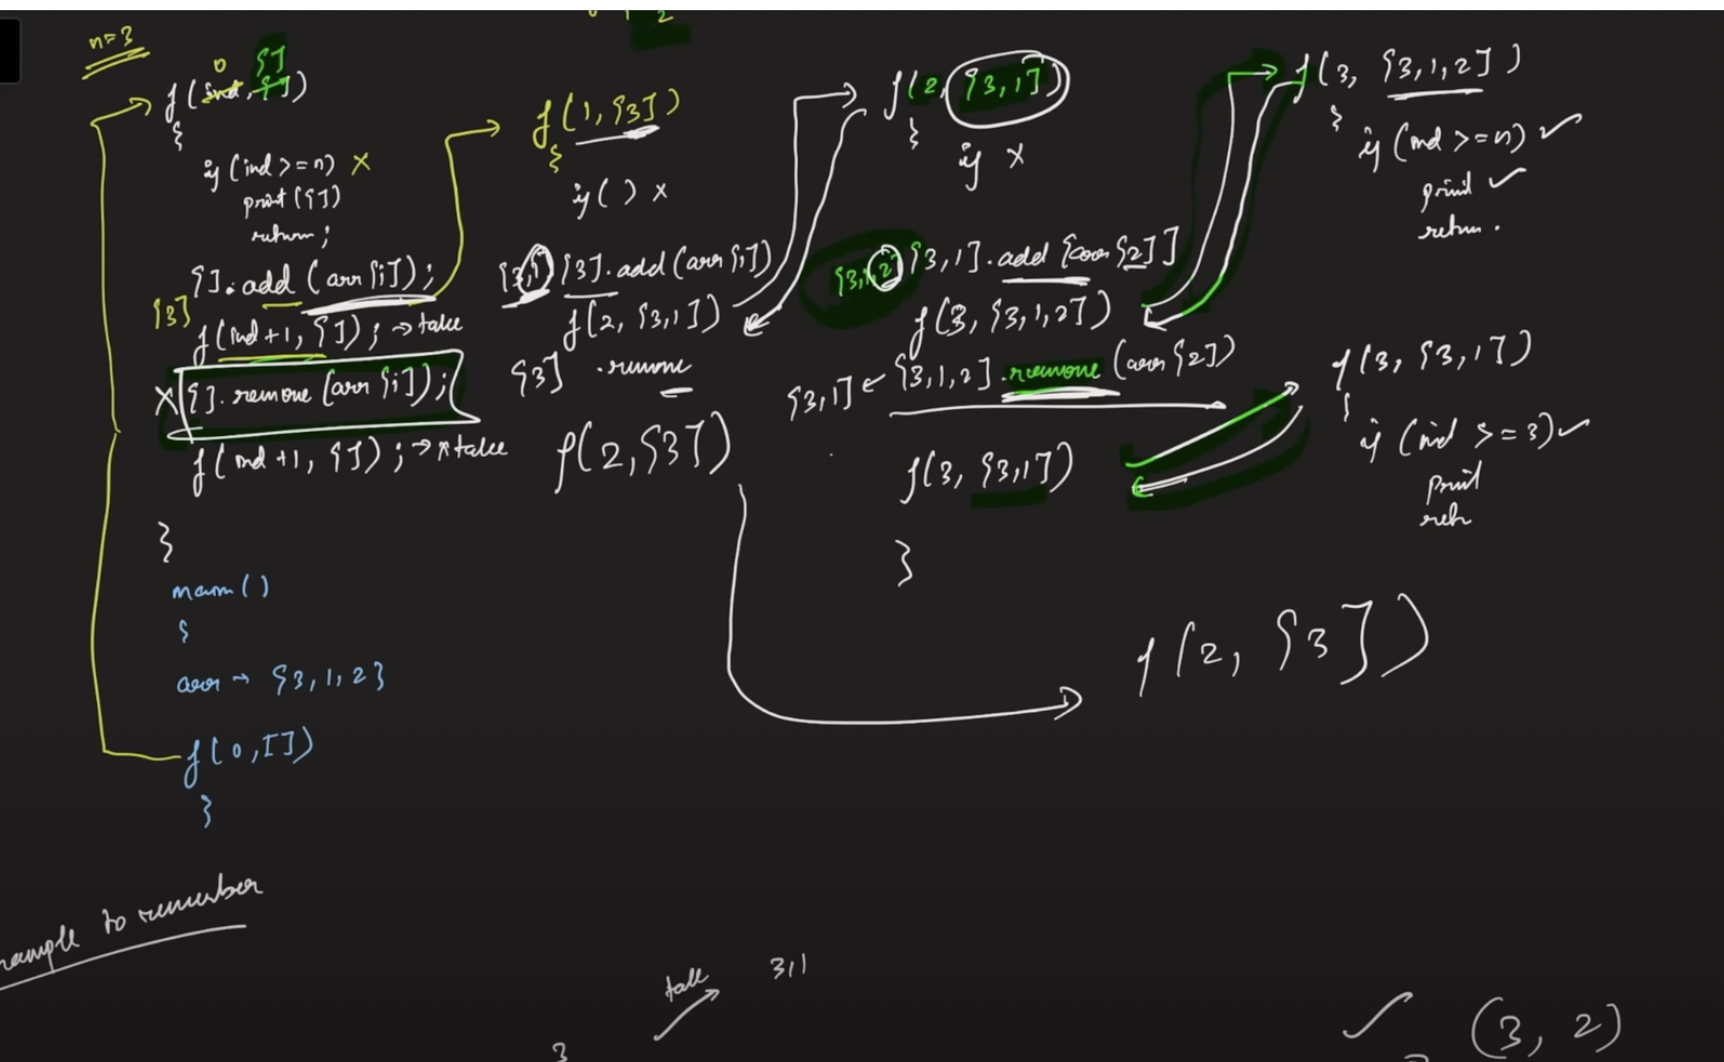 n=3
0 1 2
0 []
f(ind, [])
{
if (ind >= n) x
print([])
return;
[].add(arr[i]);
[3]
f(ind+1, []); → take
x [].remove(arr[i]);
f(ind+1, []); → x take
}
main()
{
arr → {3,1,2}
f(0,[])
}
f(1,[3])
{
if() x
[3,1] [3].add(arr[i])
f(2,[3,1])
[3] .remove
f(2,[3])
f(2,[3,1])
{
if x
[3,1,2] [3,1].add[arr[2]]
f(3,[3,1,2])
[3,1] ← [3,1,2].remove(arr[2])
f(3,[3,1])
}
f(3, [3,1,2])
{
if (ind >= n) ✓
print ✓
return.
f(3, [3,1])
{
if (ind >= 3) ✓
print
retn
f(2, [3])
to remember
take 3,1
3
(3, 2)